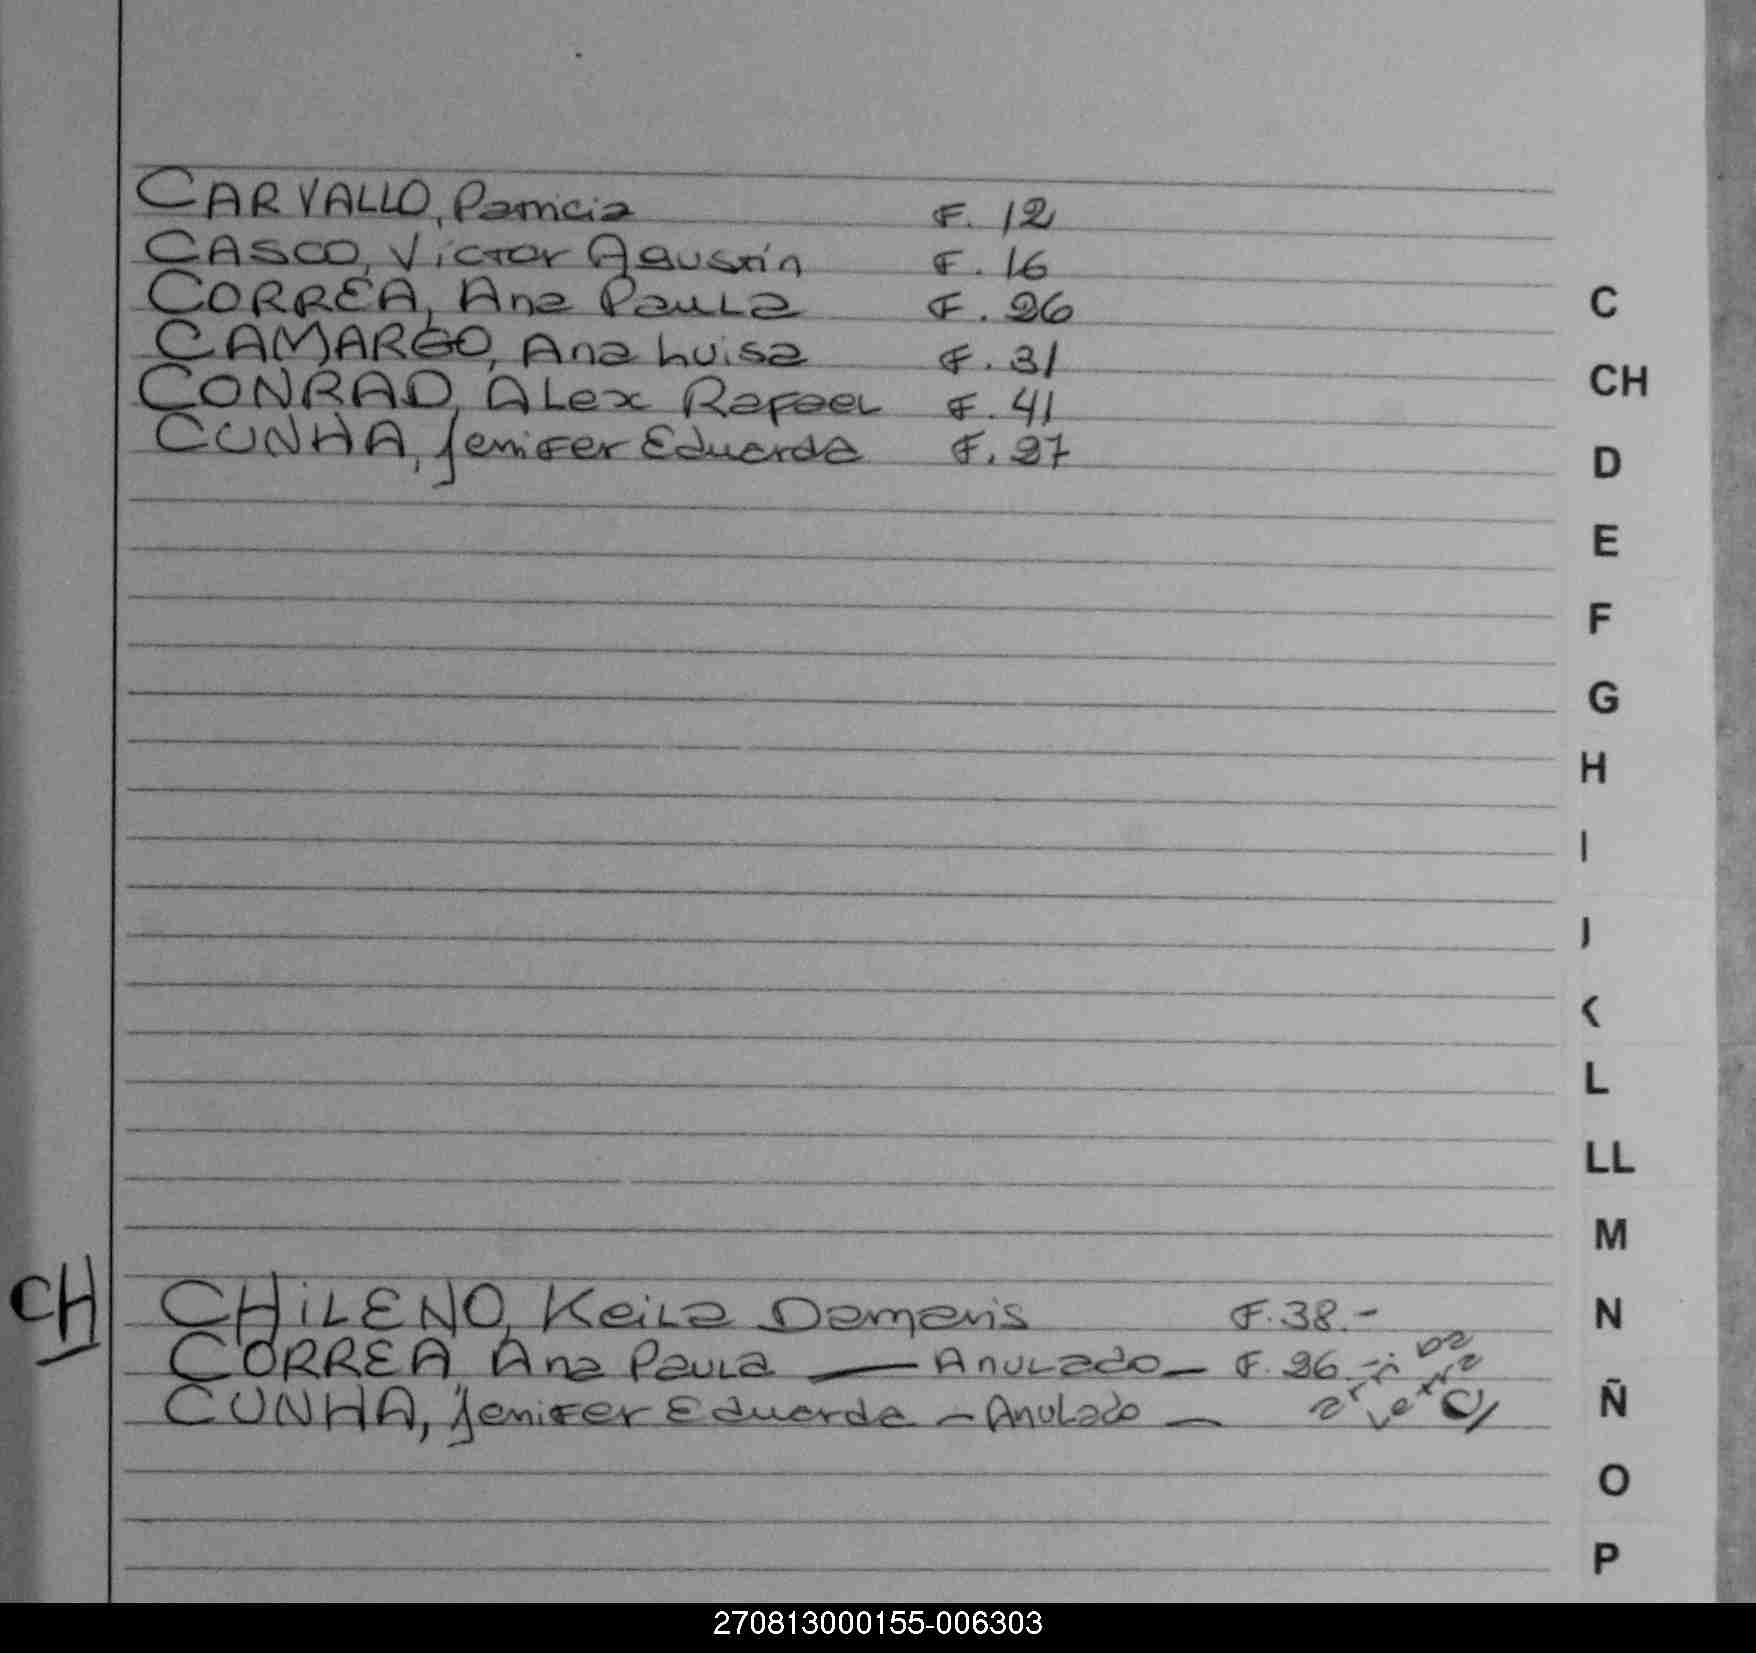 CARVALLO, Patricia F. 12
CASCO, Víctor Agustín F. 16
CORREA, Ana Paula F. 26
CAMARGO, Ana Luisa F. 31
CONRAD, Alex Rafael F. 41
CUNHA, Jenifer Eduarda F. 27
C
CH
D
E
F
G
H
I
J
K
L
LL
M
N
Ñ
O
P
CH CHILENO, Keila Damaris F. 38.-
CORREA, Ana Paula — Anulado — F. 26
CUNHA, Jenifer Eduarda - Anulado -
arriba
letra C
270813000155-006303